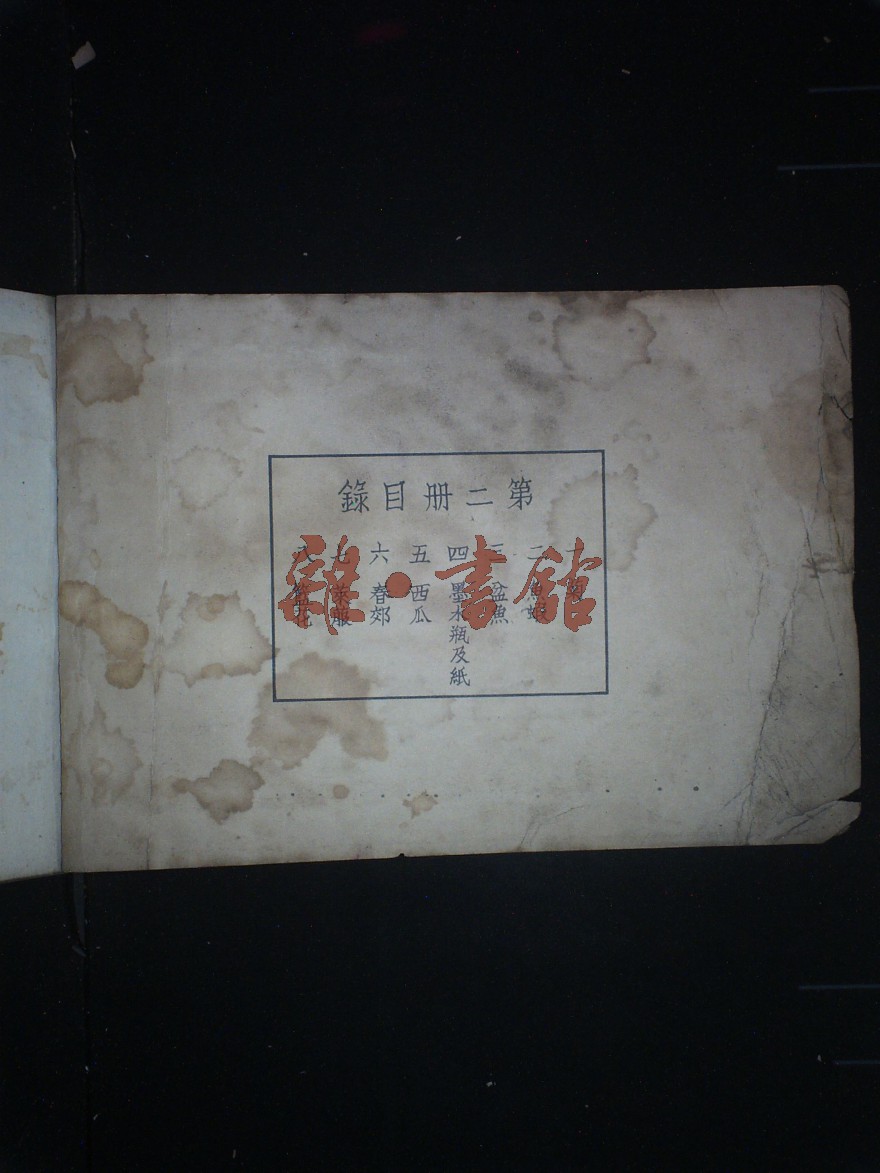 第二册目錄
一
二 魚蝦
三 盆魚
四 墨水瓶及紙
五 西瓜
六 春郊
七 萊菔
八 花
雜·書館